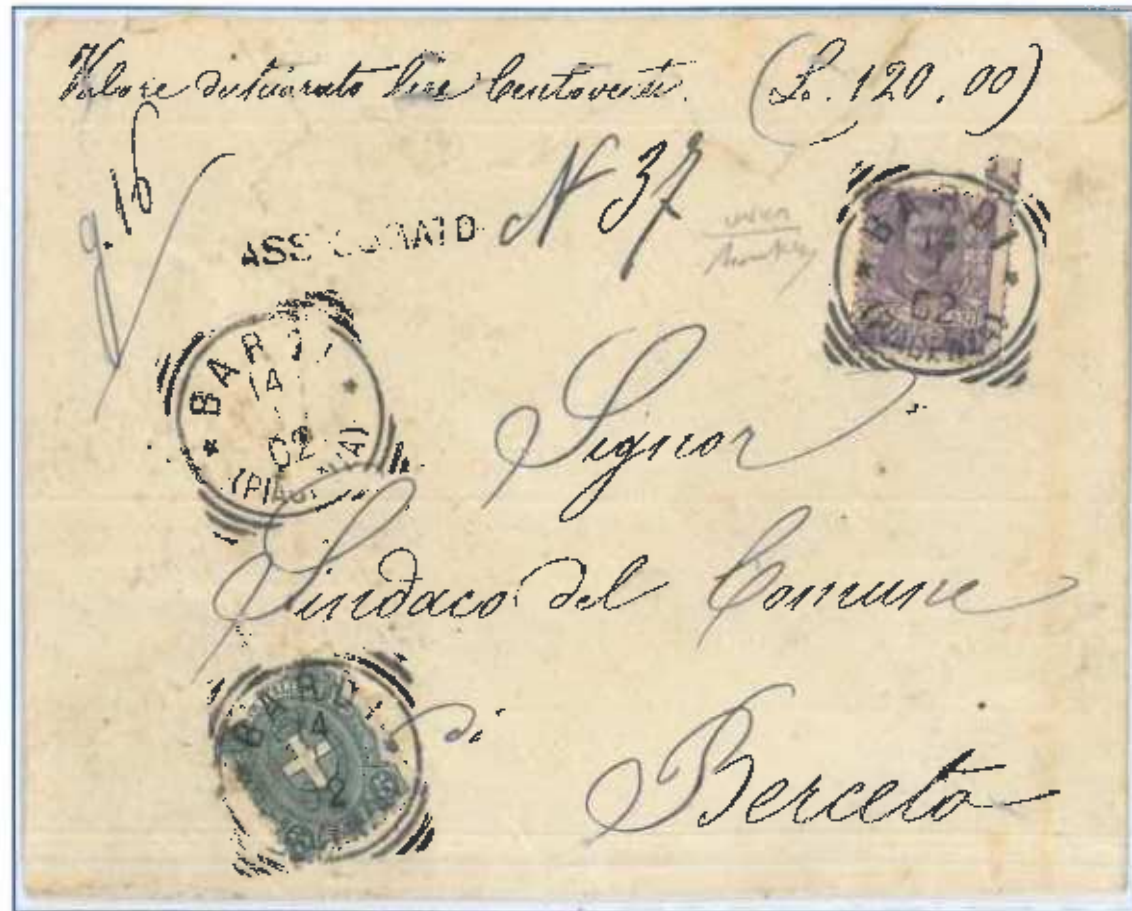 Valore dichiarato lire Centoventi. (L. 120.00)
g. 16
N 37
ASSICURATO
BARDI
14
02
(PIACENZA)
BARDI
14
02
(PIACENZA)
Signor
Sindaco del Comune
BARDI
14
2
di
Berceto